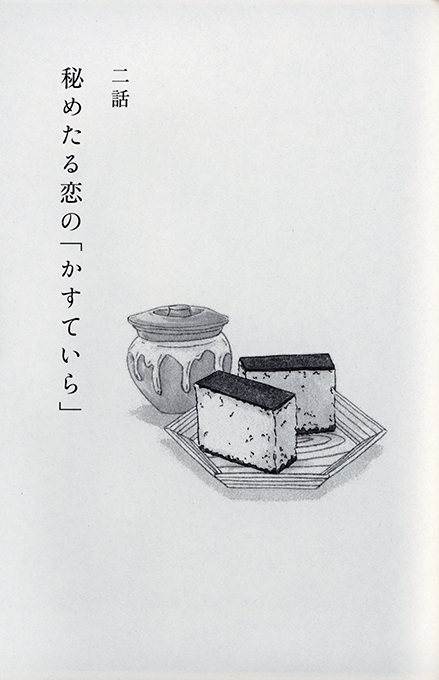 二話
秘めたる恋の「かすていら」